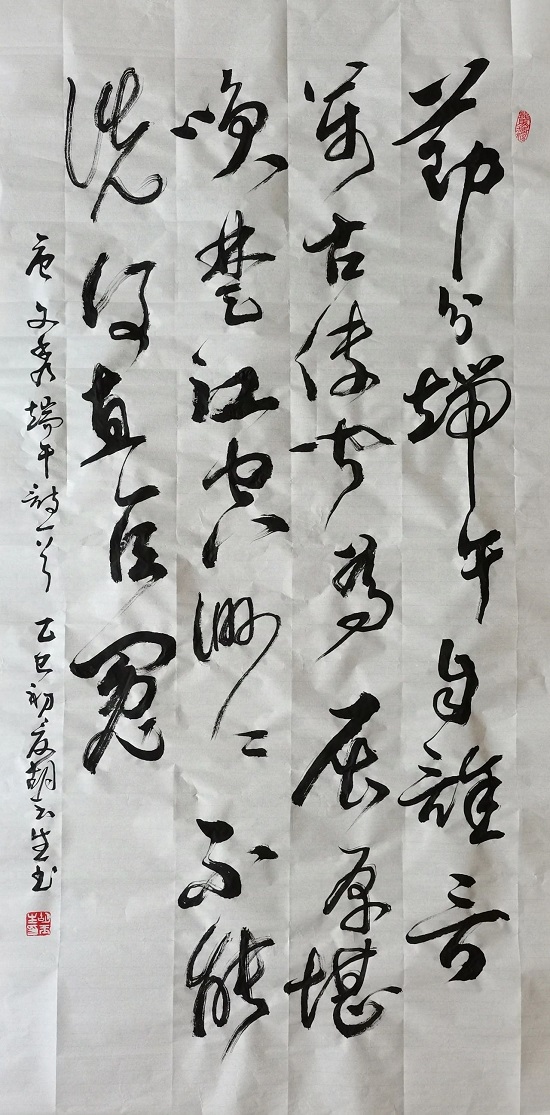 節分端午自誰言
萬古傳聞為屈原堪
咲楚江空渺〻不能
洗得直臣冤
唐文秀端午詩一首 乙巳初夏胡云生书